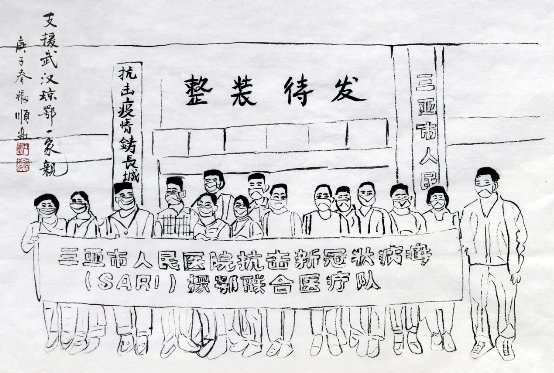 支援武汉琼鄂一家親
庚子春張順
抗击疫情铸長城
整装待发
三亚市人民
三亚市人民医院抗击新冠状病毒
（SARI）援鄂联合医疗队